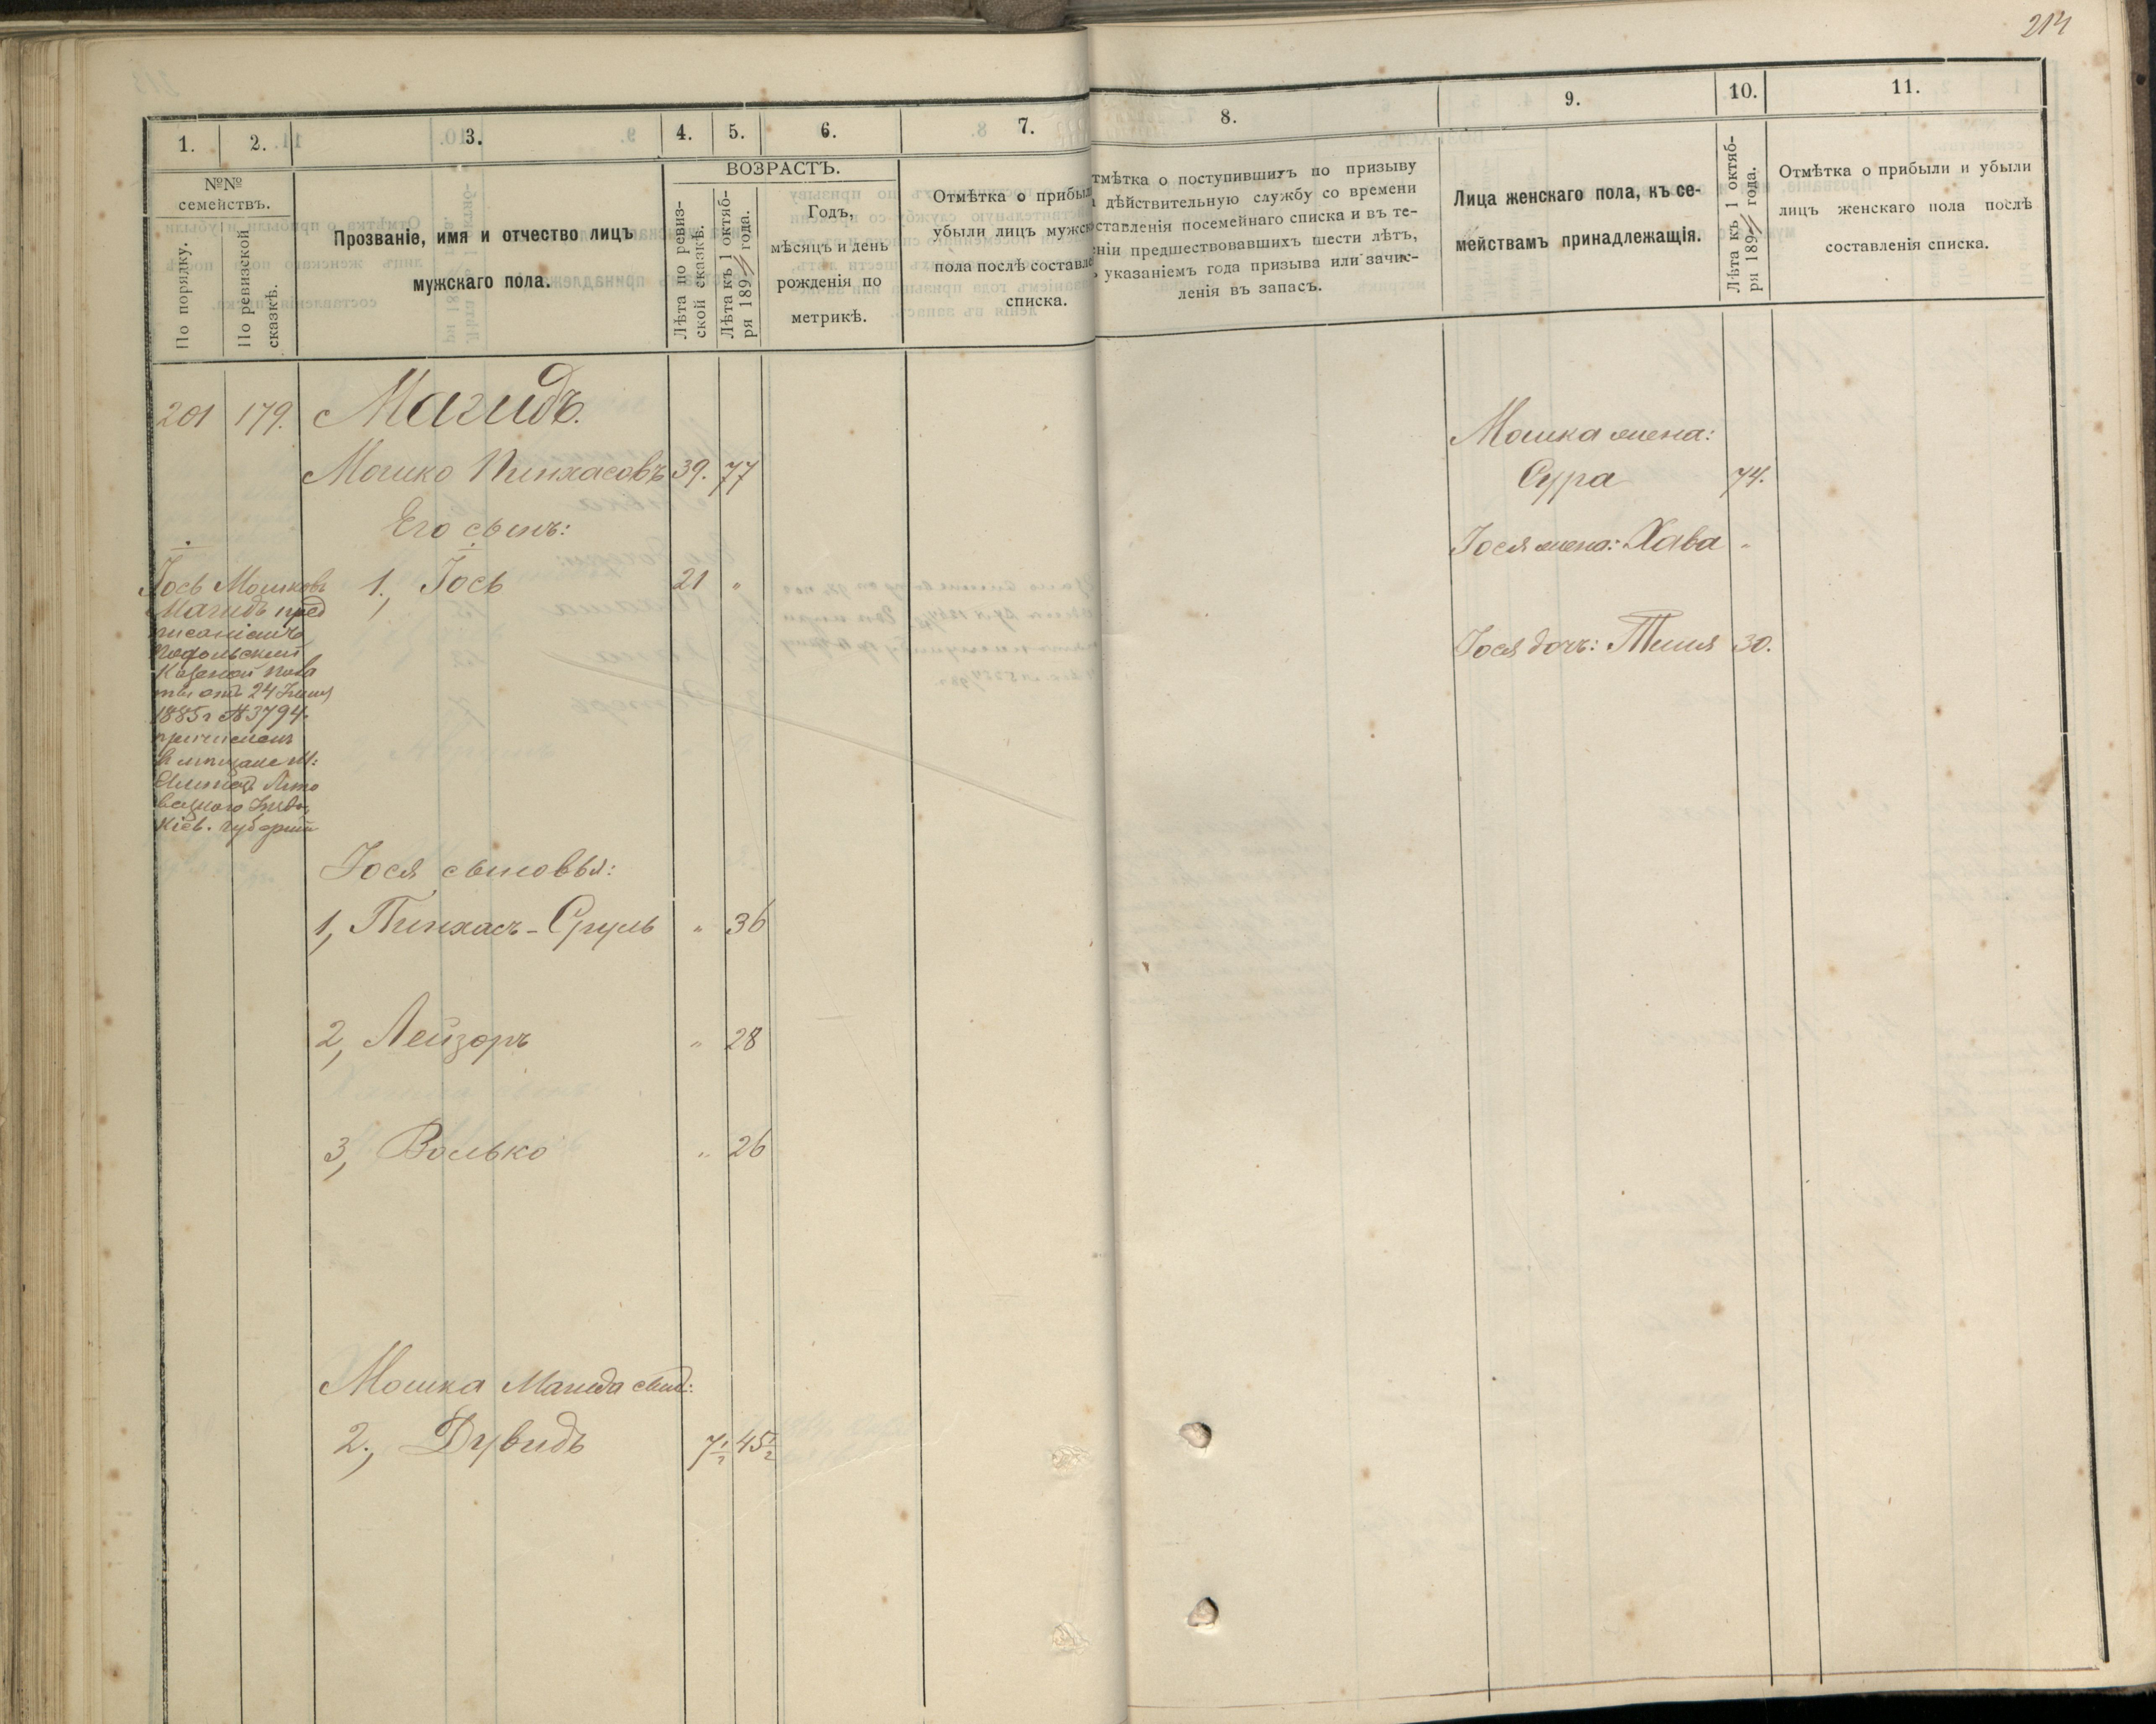 214
1.
2.
3.
4.
5.
6.
7.
8.
9.
10.
11.
№№
семействъ.
По порядку.
По ревизской
сказкѣ.
Прозваніе, имя и отчество лицъ
мужскаго пола.
ВОЗРАСТЪ.
Лѣта по ревиз-
ской сказкѣ.
Лѣта къ 1 октяб-
ря 189 года.
Годъ,
мѣсяцъ и день
рожденія по
метрикѣ.
Отмѣтка о прибыл
убыли лицъ мужск
пола послѣ составле
списка.
тмѣтка о поступившихъ по призыву
дѣйствительную службу со времени
оставленія посемейнаго списка и въ те-
ніи предшествовавшихъ шести лѣтъ,
указаніемъ года призыва или зачис-
ленія въ запасъ.
Лица женскаго пола, къ се-
мействамъ принадлежащія.
Лѣта къ 1 октяб-
ря 189 года.
Отмѣтка о прибыли и убыли
лицъ женскаго пола послѣ
составленія списка.
201 179. Магидъ.
Мошко Пинхасовъ 39. 77
Его сынъ:
1., Іось 21 "
Іось Мошковъ
Магидъ пред
писаніемъ
Подольской
Казеной пала
ты отъ 24 Іюня
1885 г №3794.
причисленъ
в мещане м:
Кіев. губерніи
Іося сыновья:
1, Пинхасъ-Сруль " 36
2, Лейзоръ " 28
3, Волько " 26
Мошка Магида сынъ:
2., Дувидъ 7½ 45½
Мошка жена:
Сура 74.
Іося жена: Хава "
Іося дочь: Тиия 30.